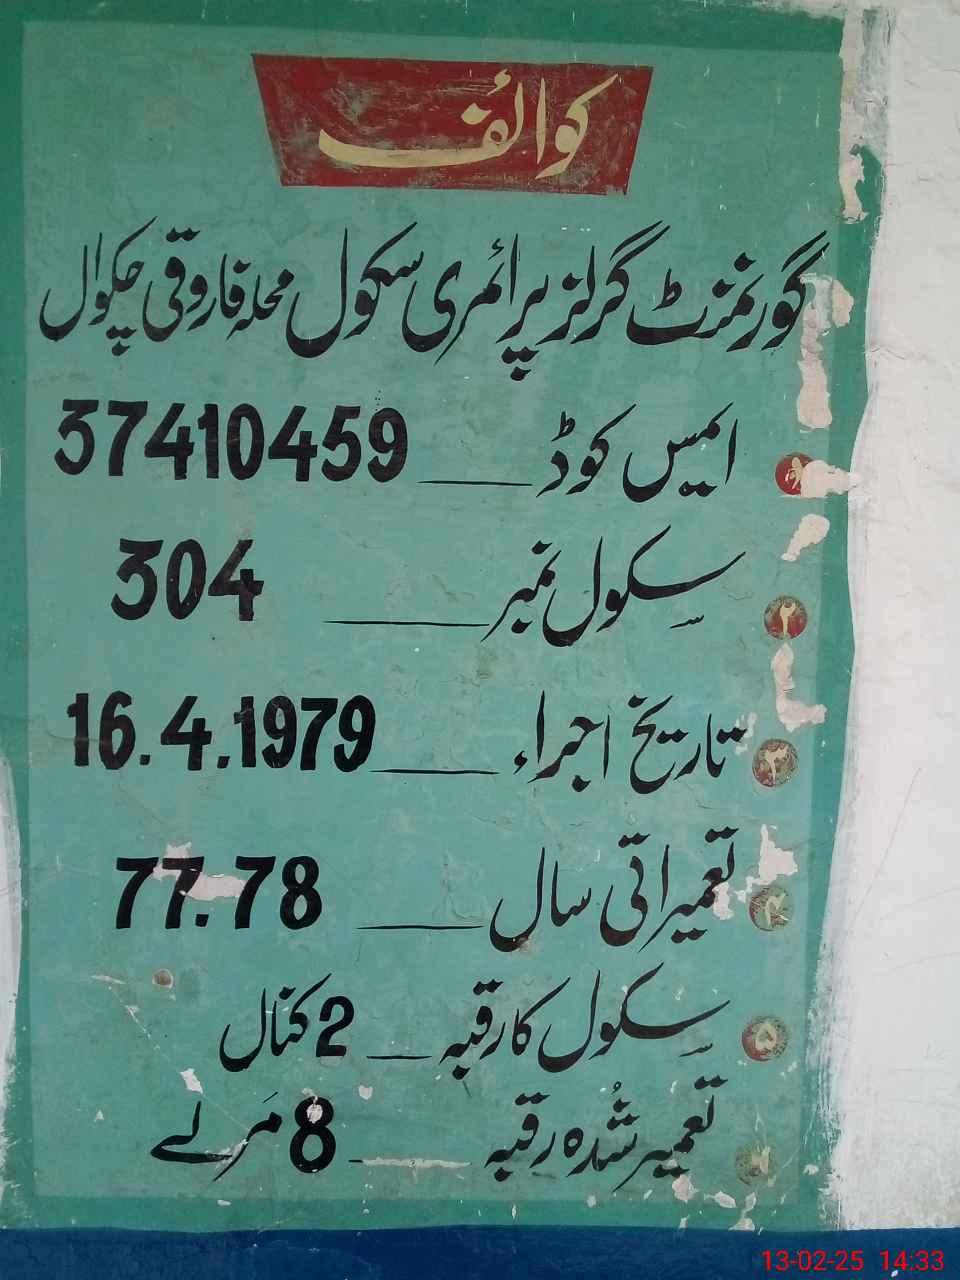 کوائف
گورنمنٹ گرلز پرائمری سکول محلہ فاروقی چکوال
۱ ایمس کوڈ ـــــ 37410459
۲ سکول نمبر ـــــ 304
۳ تاریخ اجراء ـــــ 16.4.1979
۴ تعمیراتی سال ـــــ 77.78
۵ سکول کا رقبہ ـــــ 2 کنال
تعمیر شُدہ رقبہ ـــــ 8 مَرلے
13-02-25 14:33